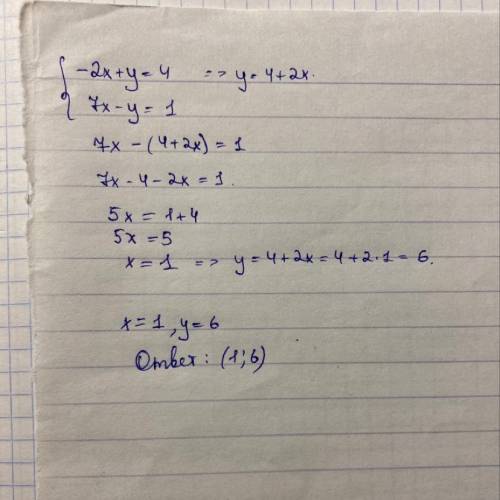 -2x+y=4 => y=4+2x.
7x-y=1
7x-(4+2x)=1
7x-4-2x=1.
5x=1+4
5x=5
x=1 => y=4+2x=4+2·1=6.
x=1, y=6
Ответ: (1;6)